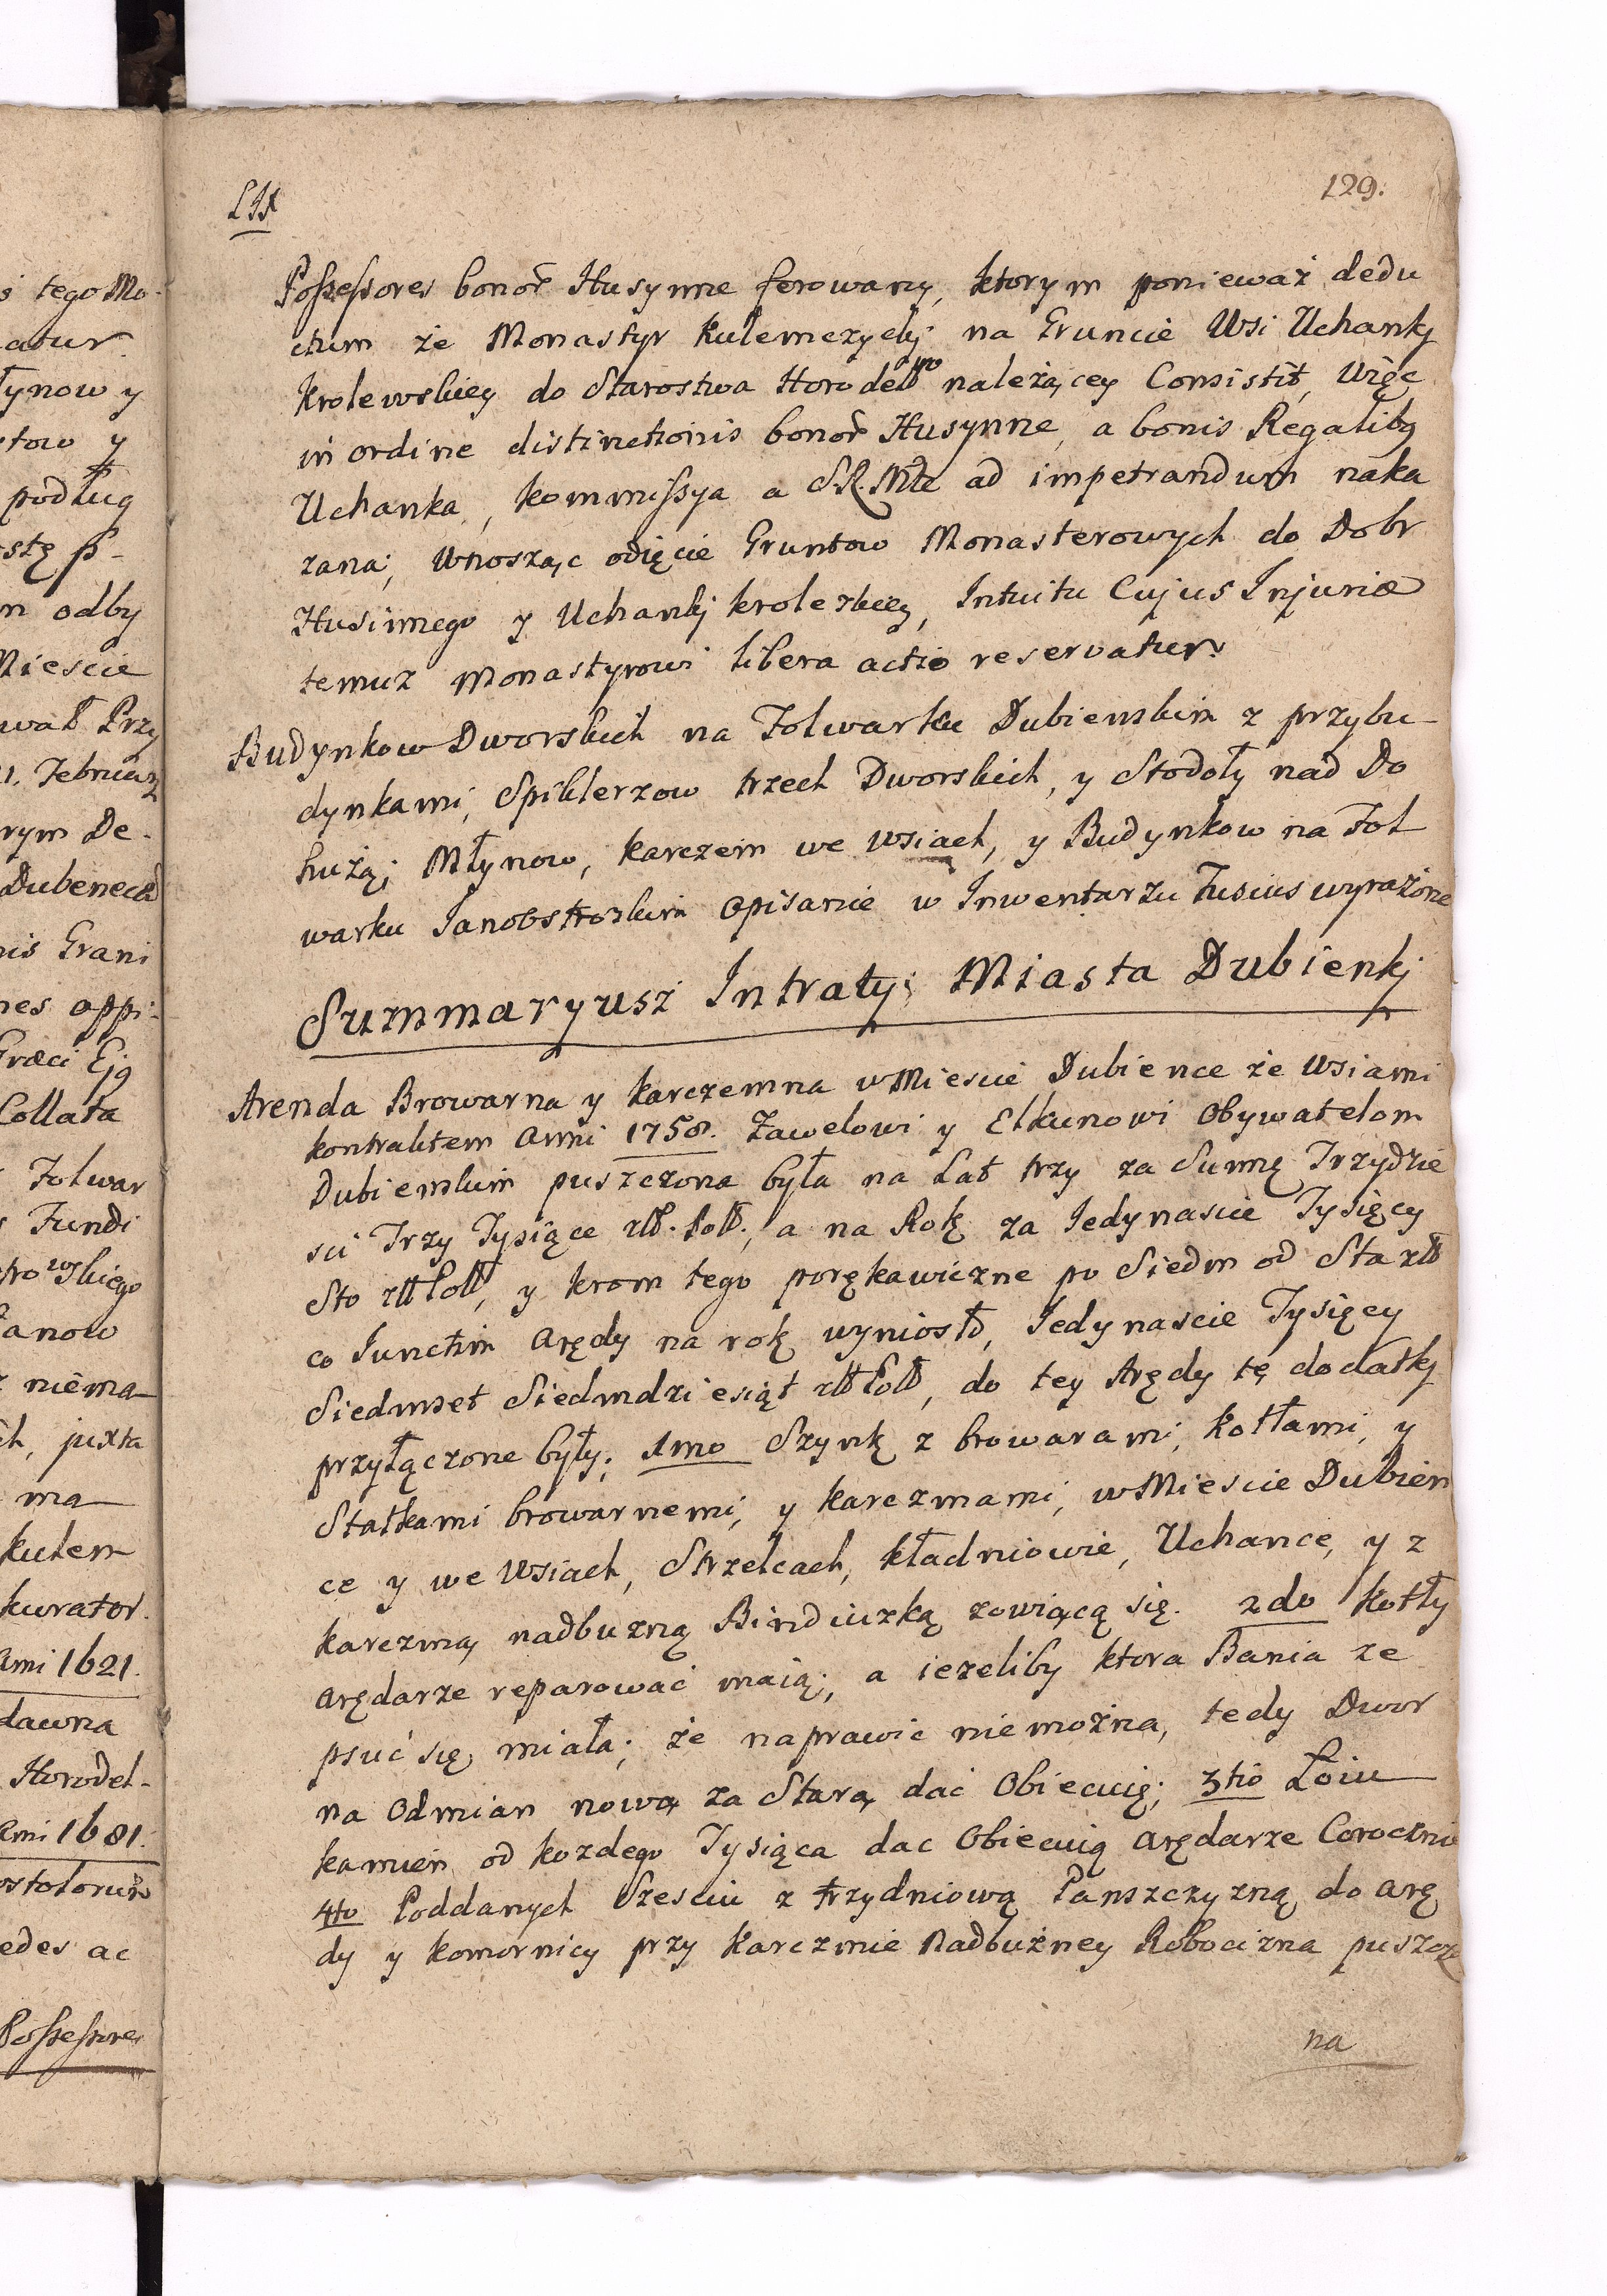 129.
Possessores bonor Husynne ferowany, ktorym ponieważ dedu
ctum że Monastyr Kulemczycky na Gruncie Wsi Uchanky
Krolewskiey do Starostwa Horodelgo należącey Consistit, więc
in ordine distinctionis bonor Husynne, a bonis Regalibq
Uchanka, Kommissya a S.R.Mte ad impetrandum naka
zana; Wnosząc odięcie Gruntow Monasterowych do Dobr
Husinnego y Uchanki Krolewskiey, Intuitu Cujus Injuriæ
temuz Monastyrowi libera actio reservatur.
Budynkow Dworskich na Folwarku Dubienskim z przybu
dynkami, Spiklerzow trzech Dworskich, y Stodoły nad Do
hużą; Młynow, karczem we wsiach, y Budynkow na Fol
warku Janostroskim Opisanie w Inwentarzu Fusius wyrażone
Summaryusz Intraty; Miasta Dubienki
Arenda Browarna y karczemna w Miescie Dubience że Wsiami
kontraktem Anni 1758. Zawelowi y Elkunowi Obywatelom
Dubienskim puszczona była na Lat trzy za Sumę Trzydzie
sci Trzy Tysiące złł. Poll., a na Rok za Jedynascie Tysięcy
Sto złł Poll, y krom tego porękawiczne po Siedm od Sta złł
co Junctim Arędy na rok wyniosło, Jedynascie Tysięcy
Siedmset Siedmdziesiąt złł Poll, do tey Arędy tę dodatky
przyłączone były; 1mo Szynk z browarami, Kotłami, y
Statkami browarnemi, y karczmami, w Miescie Dubien
ce y we Wsiach, Strzelcach, Kładniowie, Uchance, y z
karczmą nadbużną Bindiużką zowiącą się. 2do Kotły
arędarze reparować maią; a iezeliby ktora Bania ze
psuć się miała; że naprawić niemożna, tedy Dwor
na Odmian nową za Starą dać Obiecuię; 3tio Łoiu
kamień od kozdego Tysiąca dac Obiecuią Arędarze Corocznie
4to Poddanych Szesciu z trzydniową Panszczyzną do Arę
dy y Komornicy przy Karczmie Nadbużney Robocizna puszczo
na